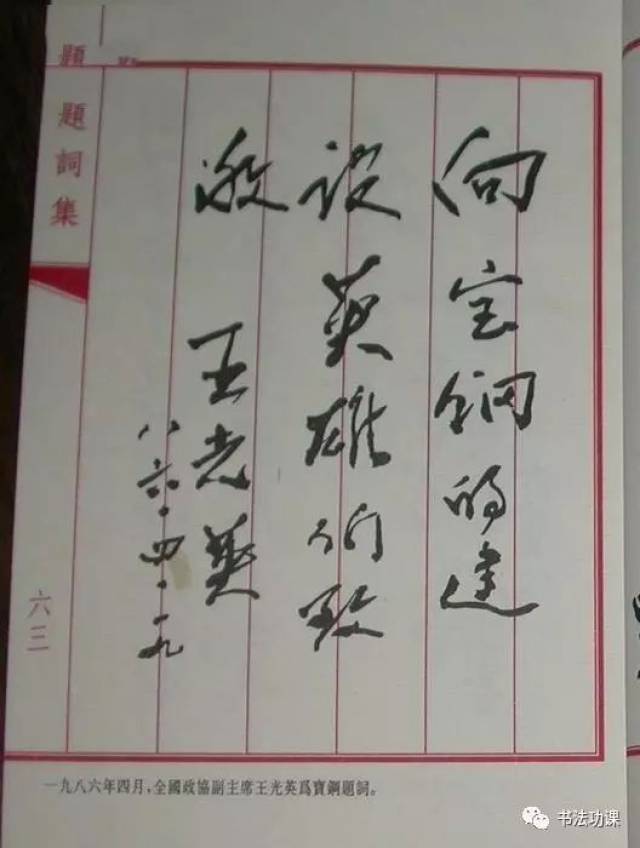 向宝钢的建
设英雄们致
敬
王光英
八六·四·一九
題
題詞集
六三
一九八六年四月，全國政協副主席王光英爲寶鋼題詞。
书法功课